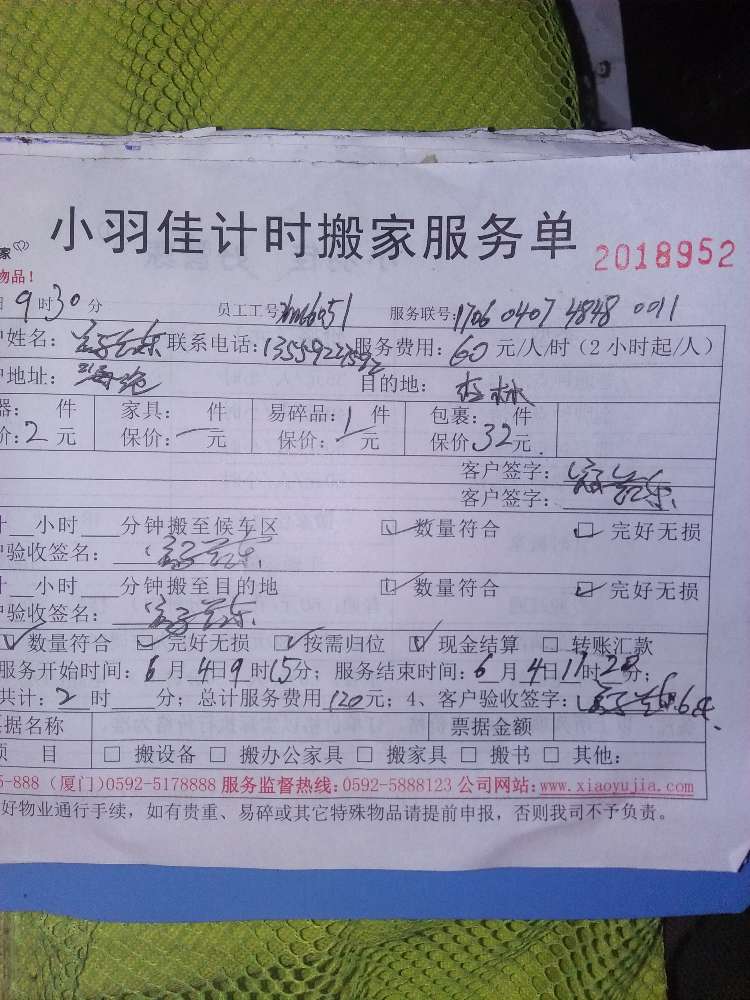 小羽佳计时搬家服务单 2018952
家
物品！
9时30分 员工工号: 服务联号:1706 0407 4848 0011
户姓名: 联系电话: 服务费用:60元/人/时(2小时起/人)
户地址: 目的地:杏林
器: 件 家具: 件 易碎品: 件 包裹: 件
价:2元 保价:一元 保价:1元 保价32元
客户签字:
客户签字:
计__小时___分钟搬至候车区 ☑数量符合 ☑完好无损
户验收签名:
计__小时___分钟搬至目的地 ☑数量符合 ☑完好无损
户验收签名:
☑数量符合 ☑完好无损 ☑按需归位 ☑现金结算 □转账汇款
服务开始时间:6月4日9时15分; 服务结束时间:6月4日11时28分;
共计:2时___分; 总计服务费用120元; 4、客户验收签字: 6.4.
票据名称 票据金额
项 目 □ 搬设备 □ 搬办公家具 □ 搬家具 □ 搬书 □ 其他:
5-888 (厦门)0592-5178888 服务监督热线:0592-5888123 公司网站:www.xiaoyujia.com
好物业通行手续，如有贵重、易碎或其它特殊物品请提前申报，否则我司不予负责。